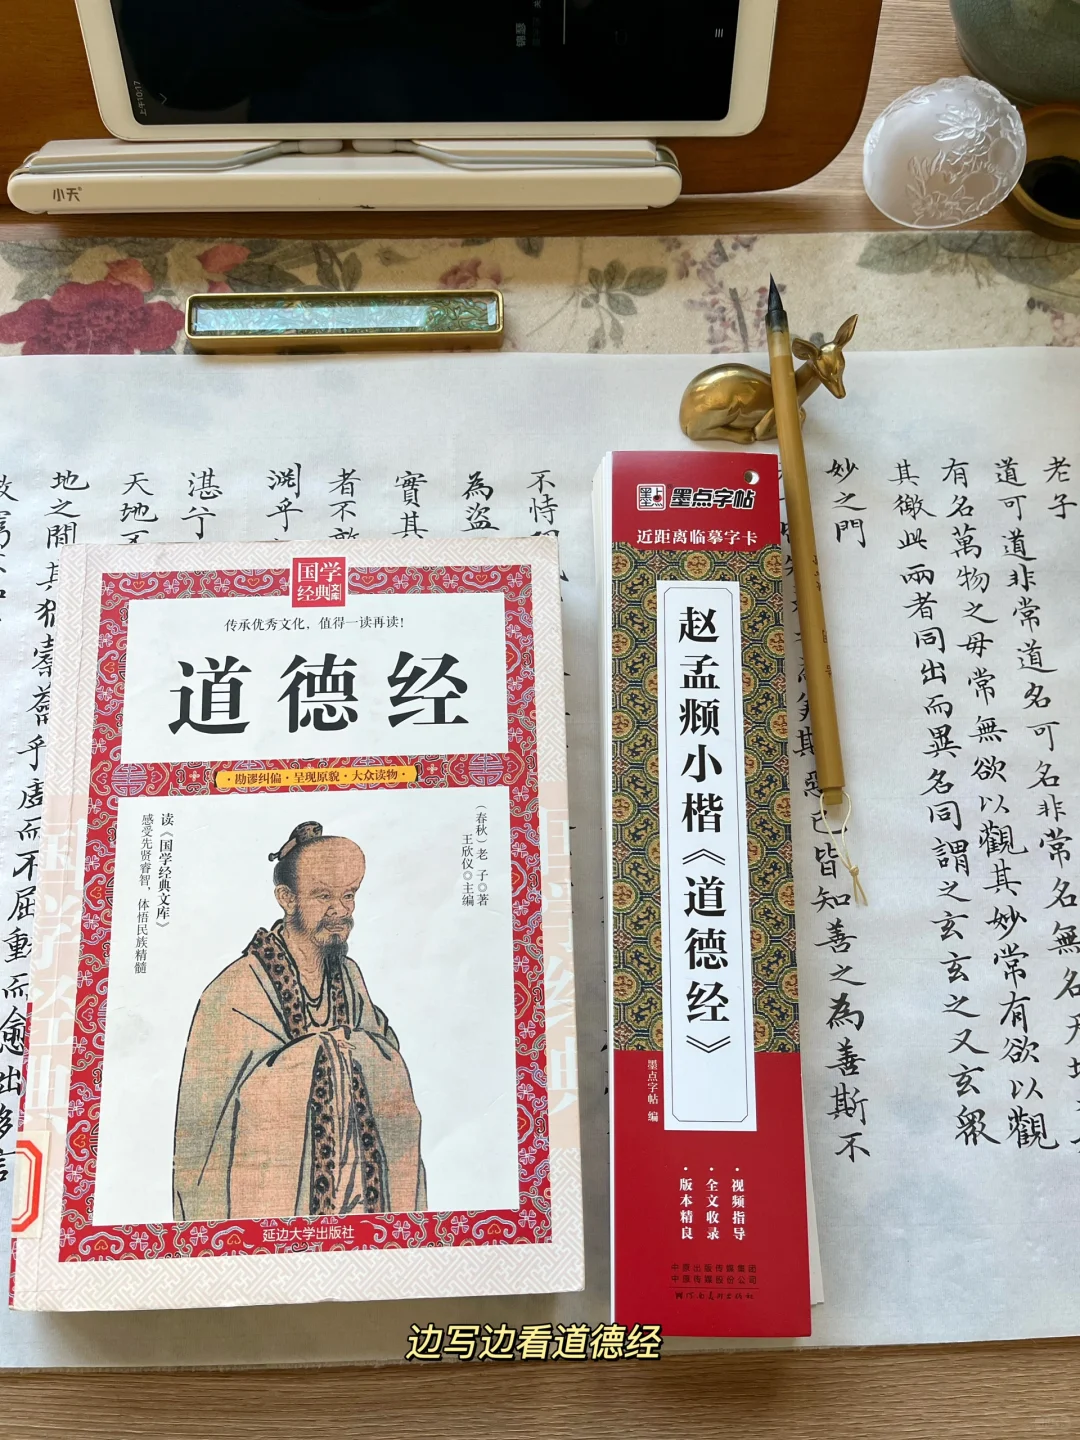 上午10:17
小天
国学
经典文库
传承优秀文化，值得一读再读！
道德经
·勘谬纠偏·呈现原貌·大众读物·
（春秋）老子◎著
王欣仪◎主编
读《国学经典文库》
感受先贤睿智，体悟民族精髓
延边大学出版社
墨点字帖
近距离临摹字卡
赵孟頫小楷《道德经》
墨点字帖 编
·视频指导
·全文收录
·版本精良
中原出版传媒集团
中原传媒股份公司
河南美术出版社
老子
道可道非常道名可名非常名無名天地
有名萬物之母常無欲以觀其妙常有欲以觀
其徼此兩者同出而異名同謂之玄玄之又玄眾
妙之門
已皆知善之為善斯不
不恃
為盜
實其
者不敢
淵乎
湛兮
天地不
地之間其猶橐籥乎虛而不屈動而愈出
边写边看道德经